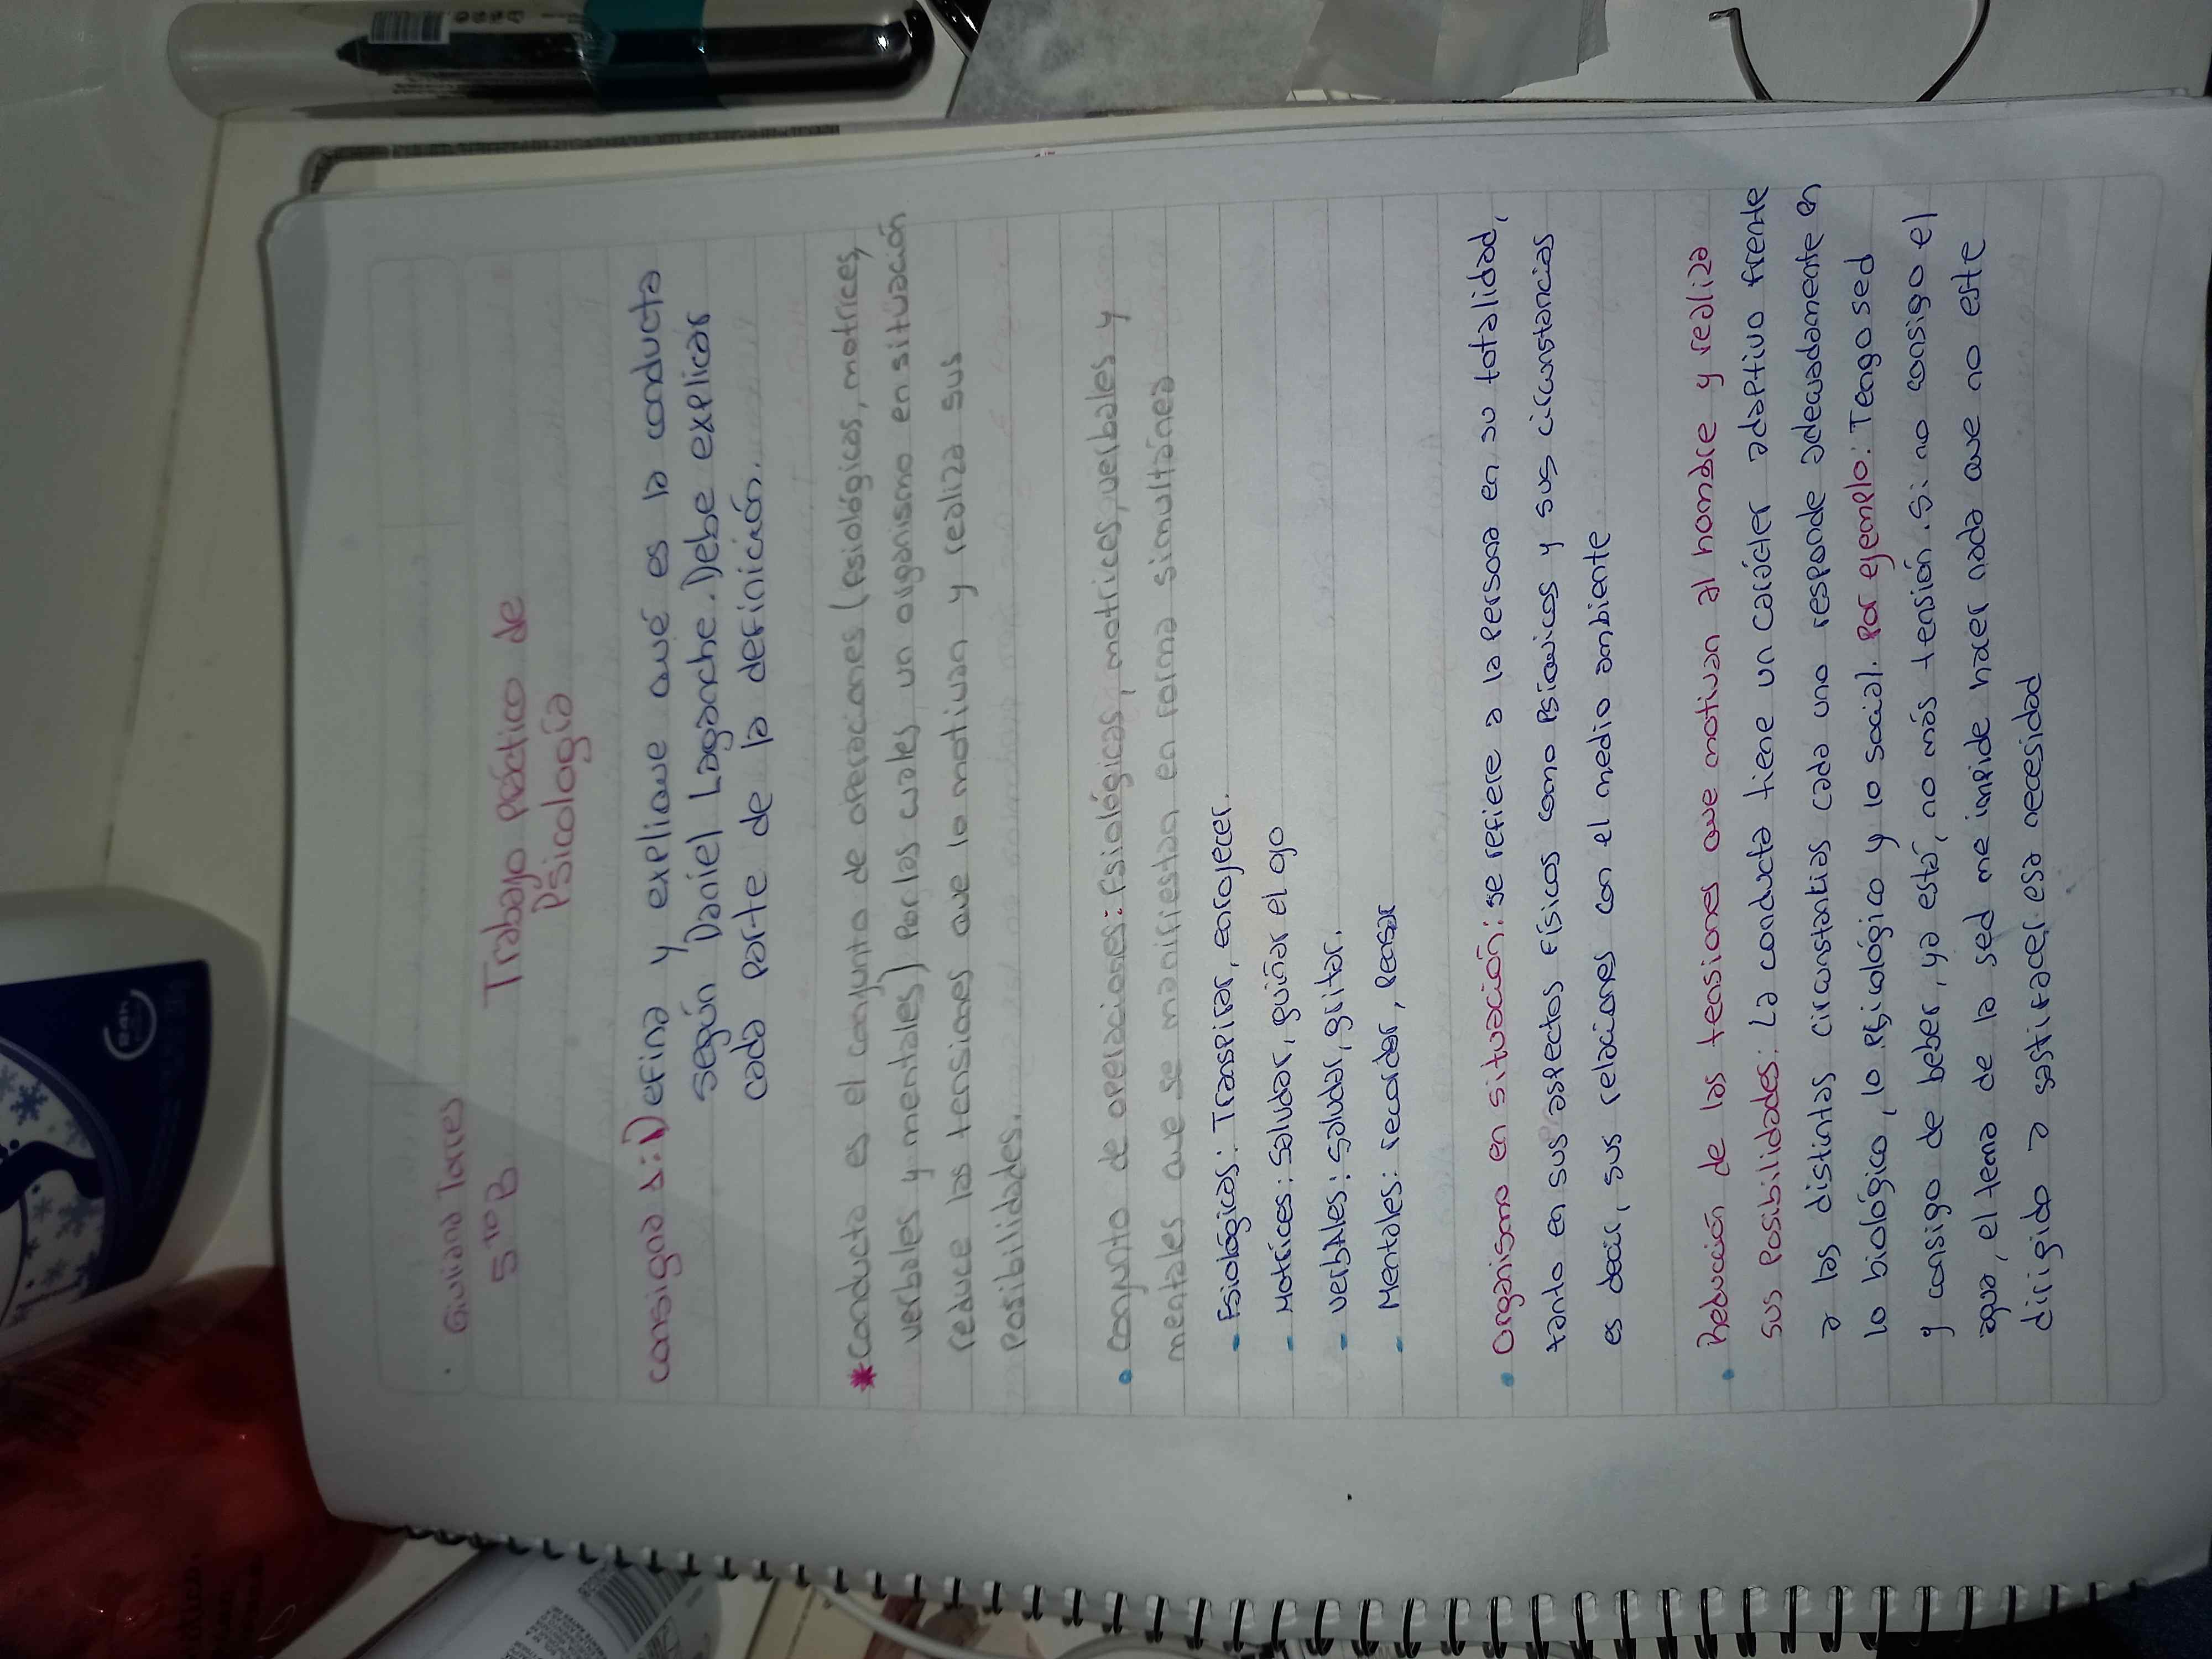 Giuliana Torres
5to B
Trabajo práctico de
Psicología
consigna 1: Defina y explique qué es la conducta
según Daniel Lagache. Debe explicar
cada parte de la definición.
*Conducta es el conjunto de operaciones (fisiológicas, motrices,
verbales y mentales) por las cuales un organismo en situación
reduce las tensiones que lo motivan y realiza sus
posibilidades.
• conjunto de operaciones: fisiológicas, motrices, verbales y
mentales que se manifiestan en forma simultánea
- Fsiológicas: Transpirar, enrojecer.
- Motrices: saludar, guiñar el ojo
- verbales: saludar, gritar.
- Mentales: recordar, pensar
• Organismo en situación: se refiere a la persona en su totalidad,
tanto en sus aspectos físicos como psíquicos y sus circunstancias
es decir, sus relaciones con el medio ambiente
• Reducción de las tensiones que motivan al hombre y realiza
sus posibilidades: La conducta tiene un carácter adaptivo frente
a las distintas circunstantias cada uno responde adecuadamente en
lo biológico, lo psicológico y lo social. Por ejemplo: Tengo sed
y consigo de beber, ya está, no más tensión. Si no consigo el
agua, el tema de la sed me impide hacer nada que no este
dirigido a sastifacer esa necesidad
24h